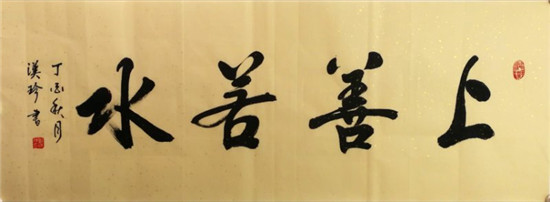 上善若水
丁酉秋月
汉珍書